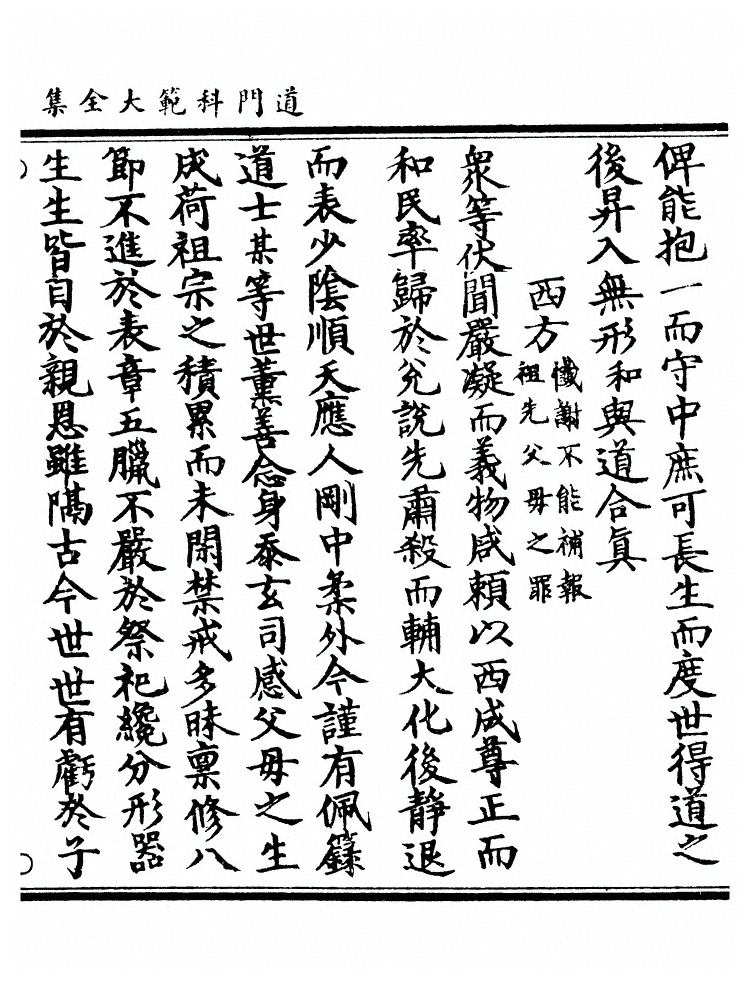 道門科範大全集
俾能抱一而守中庶可長生而度世得道之
後昇入無形和與道合真
西方
懺謝不能補報
祖先父母之罪
衆等伏聞嚴凝而義物咸頼以西成尊正而
和民率歸於兊說先肅殺而輔大化後静退
而表少陰順天應人剛中柔外今謹有佩籙
道士某等世薰善念身忝玄司感父母之生
成荷祖宗之積累而未閑禁戒多昧稟修八
節不進於表章五臘不嚴於祭祀纔分形器
生生皆自於親恩雖隔古今世世有虧於子